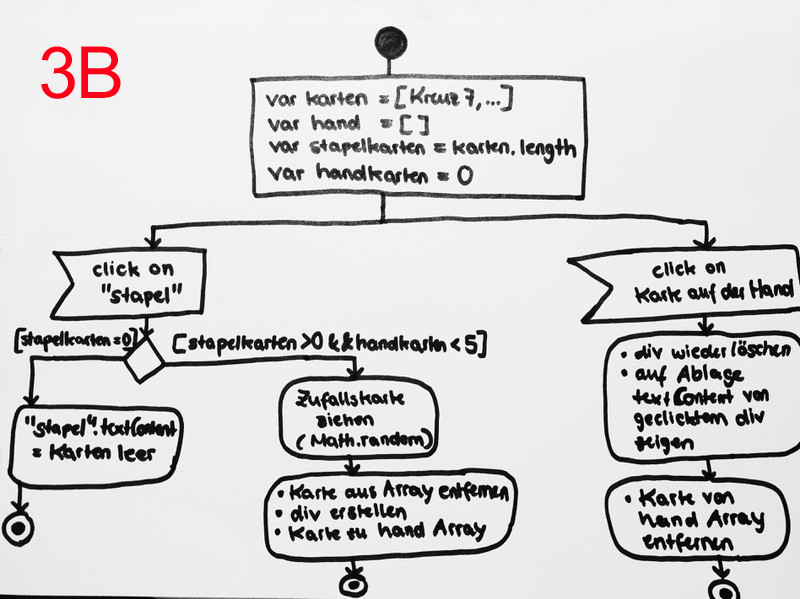 3B
var karten = [Kreuz 7,...]
var hand = []
var stapelkarten = karten.length
var handkarten = 0
click on
"stapel"
click on
Karte auf der Hand
[stapelkarten=0]
[stapelkarten >0 && handkarten < 5]
"stapel".textContent
= Karten leer
Zufallskarte
ziehen
(Math.random)
• Karte aus Array entfernen
• div erstellen
• Karte zu hand Array
• div wieder löschen
• auf Ablage
textContent von
geclicktem div
zeigen
• Karte von
hand Array
entfernen